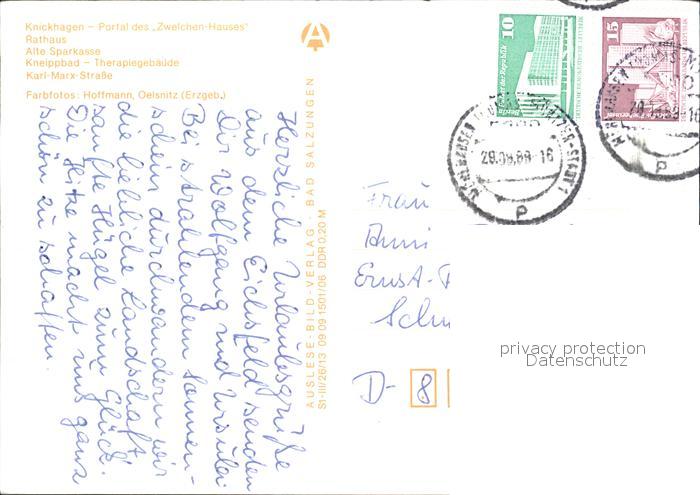 Knickhagen – Portal des „Zwetchen-Hauses"
Rathaus
Alte Sparkasse
Kneippbad – Therapiegebäude
Karl-Marx-Straße
Farbfotos: Hoffmann, Oelsnitz (Erzgeb.)
Herzliche Urlaubsgrüße
aus dem Eichsfeld senden
Dir Wolfgang und Ursula.
Bei strahlendem Sonnen-
schein durchwandern wir
die liebliche Landschaft.
Sanfte Hügel zum Glück.
Die Hitze macht uns ganz
schön zu schaffen.
AUSLESE-BILD-VERLAG · BAD SALZUNGEN
S1-III/26/13 09 09 1501/06 DDR 0,20 M
10
15
29.08.88-16
P
P
Frau
Anni
Ernst-
D- 8
privacy protection
Datenschutz